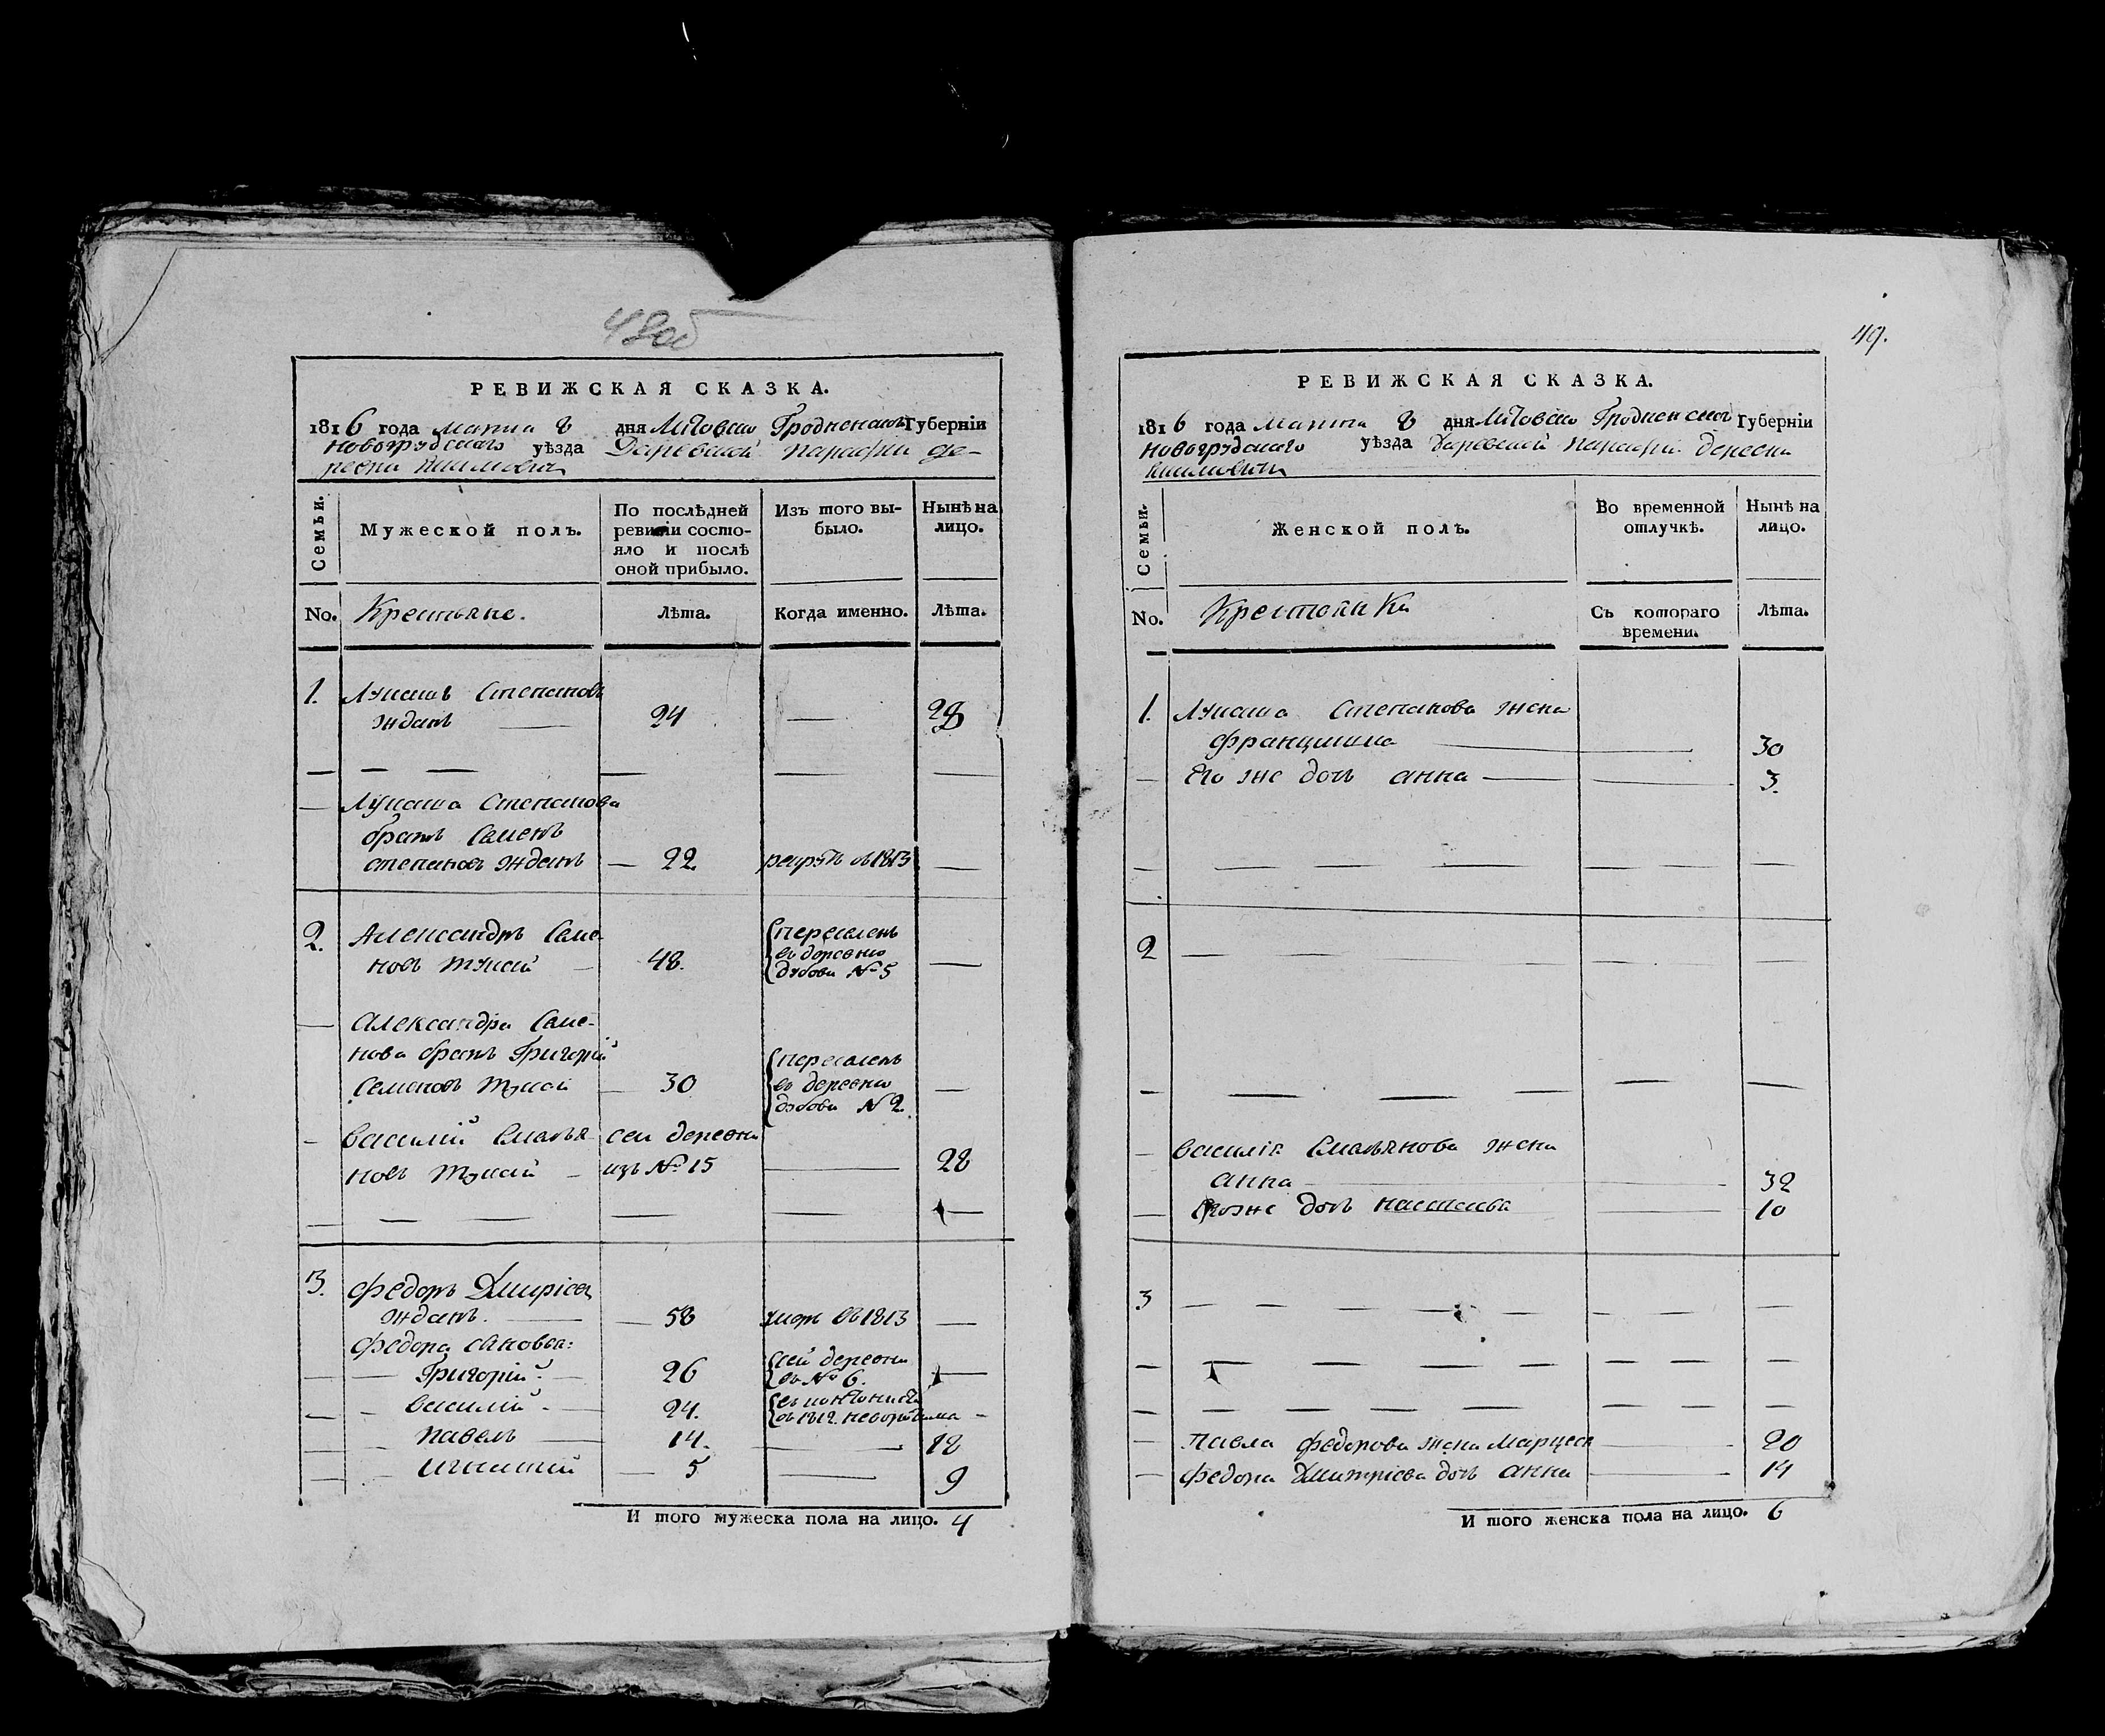 48об
РЕВИЖСКАЯ СКАЗКА.
1816 года марта 8 дня Литовско Гродненской Губернiи
Новогрудскаго уѣзда Даревской парафіи де-
ревни
Семьи.
Мужеской полъ.
По послѣдней ревизiи состояло и послѣ оной прибыло.
Изъ того выбыло.
Нынѣ на лицо.
No. Крестьяне.
Лѣта.
Когда именно.
Лѣта.
1. Лукашъ Степановъ
Жданъ — 24 — 28
— Лукаша Степанова
братъ Саменъ
Степановъ Жданъ — 22 рекрутъ въ 1813 —
2. Александръ Саме-
новъ — 48. переселенъ въ деревню Дубови № 5 —
— Александра Саме-
нова братъ Григорій
Семеновъ — 30 переселенъ въ деревню Дубови № 2 —
— Василий Емелья- сей деревни
новъ — изъ № 15 — 28
3. Федоръ Дмитріев
Жданъ. — 58 умеръ въ 1813 —
Федора сыновья:
— Григорій — 26 сей деревни въ № 6. —
— Василій — 24. в 1812. —
— Павелъ — 14. — 18
— Игнатій — 5 — 9
И того мужеска пола на лицо. 4
49.
РЕВИЖСКАЯ СКАЗКА.
1816 года марта 8 дня Литовско Гродненской Губернiи
Новогрудскаго уѣзда Даревской парафіи деревни
Семьи.
Женской полъ.
Во временной отлучкѣ.
Нынѣ на лицо.
No. Крестьянки
Съ котораго времени.
Лѣта.
1. Лукаша Степанова жена
Францишка — 30
— Его же дочь Анна — 3.
2
— Василія Емельянова жена
Анна — 32
— Его же дочь Настасья — 10
3
— Павла Федорова жена — 20
— Федора Дмитріева дочь Анна — 14
И того женска пола на лицо. 6